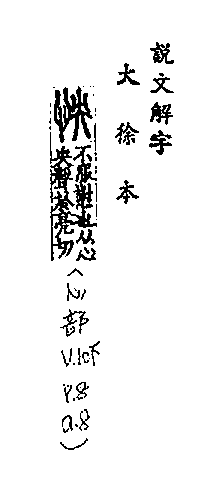 說文解字
大徐本
怏
不服懟也从心
央聲於亮切
(心部
V.10下
P.8
a.8)